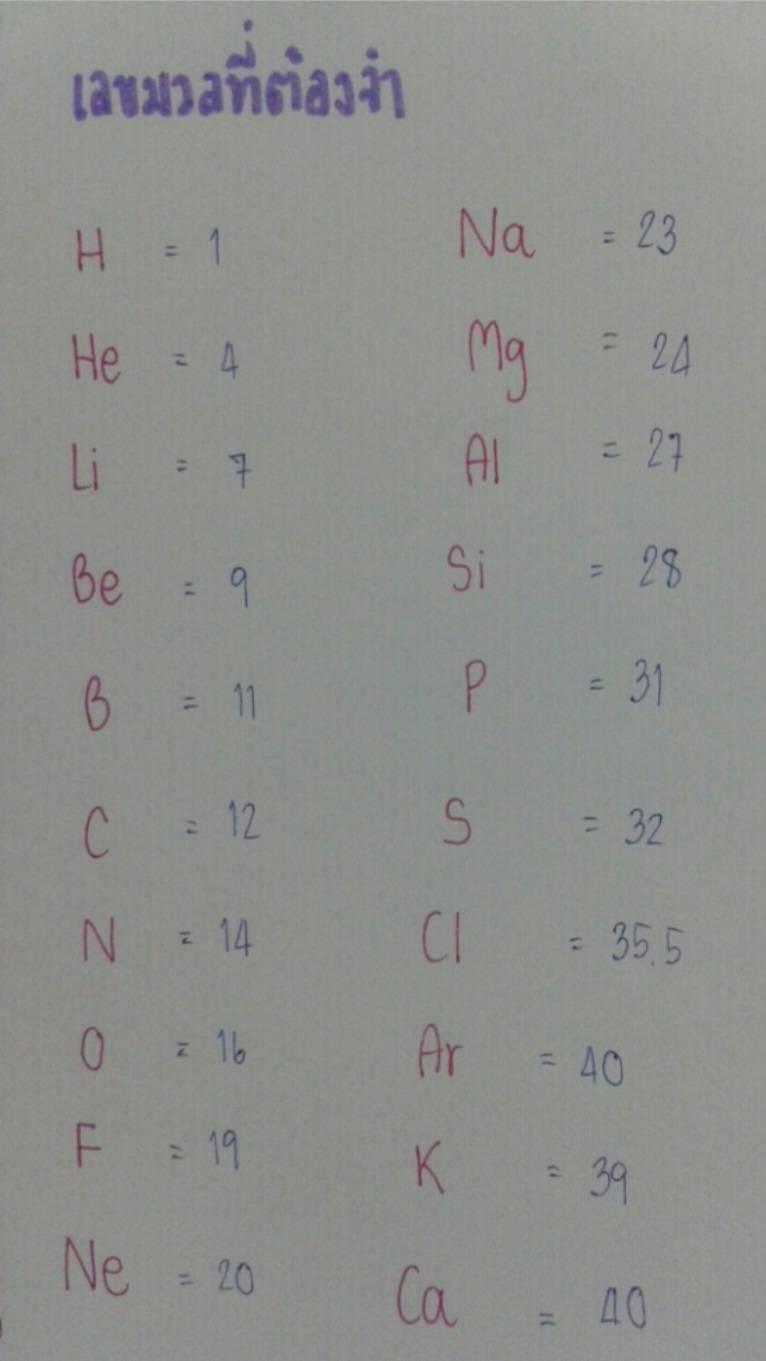 เลขมวลที่ต้องจำ
H = 1
He = 4
Li = 7
Be = 9
B = 11
C = 12
N = 14
O = 16
F = 19
Ne = 20
Na = 23
Mg = 24
Al = 27
Si = 28
P = 31
S = 32
Cl = 35.5
Ar = 40
K = 39
Ca = 40